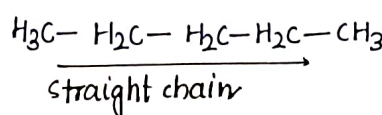 H₃C— H₂C— H₂C—H₂C—CH₃
straight chain